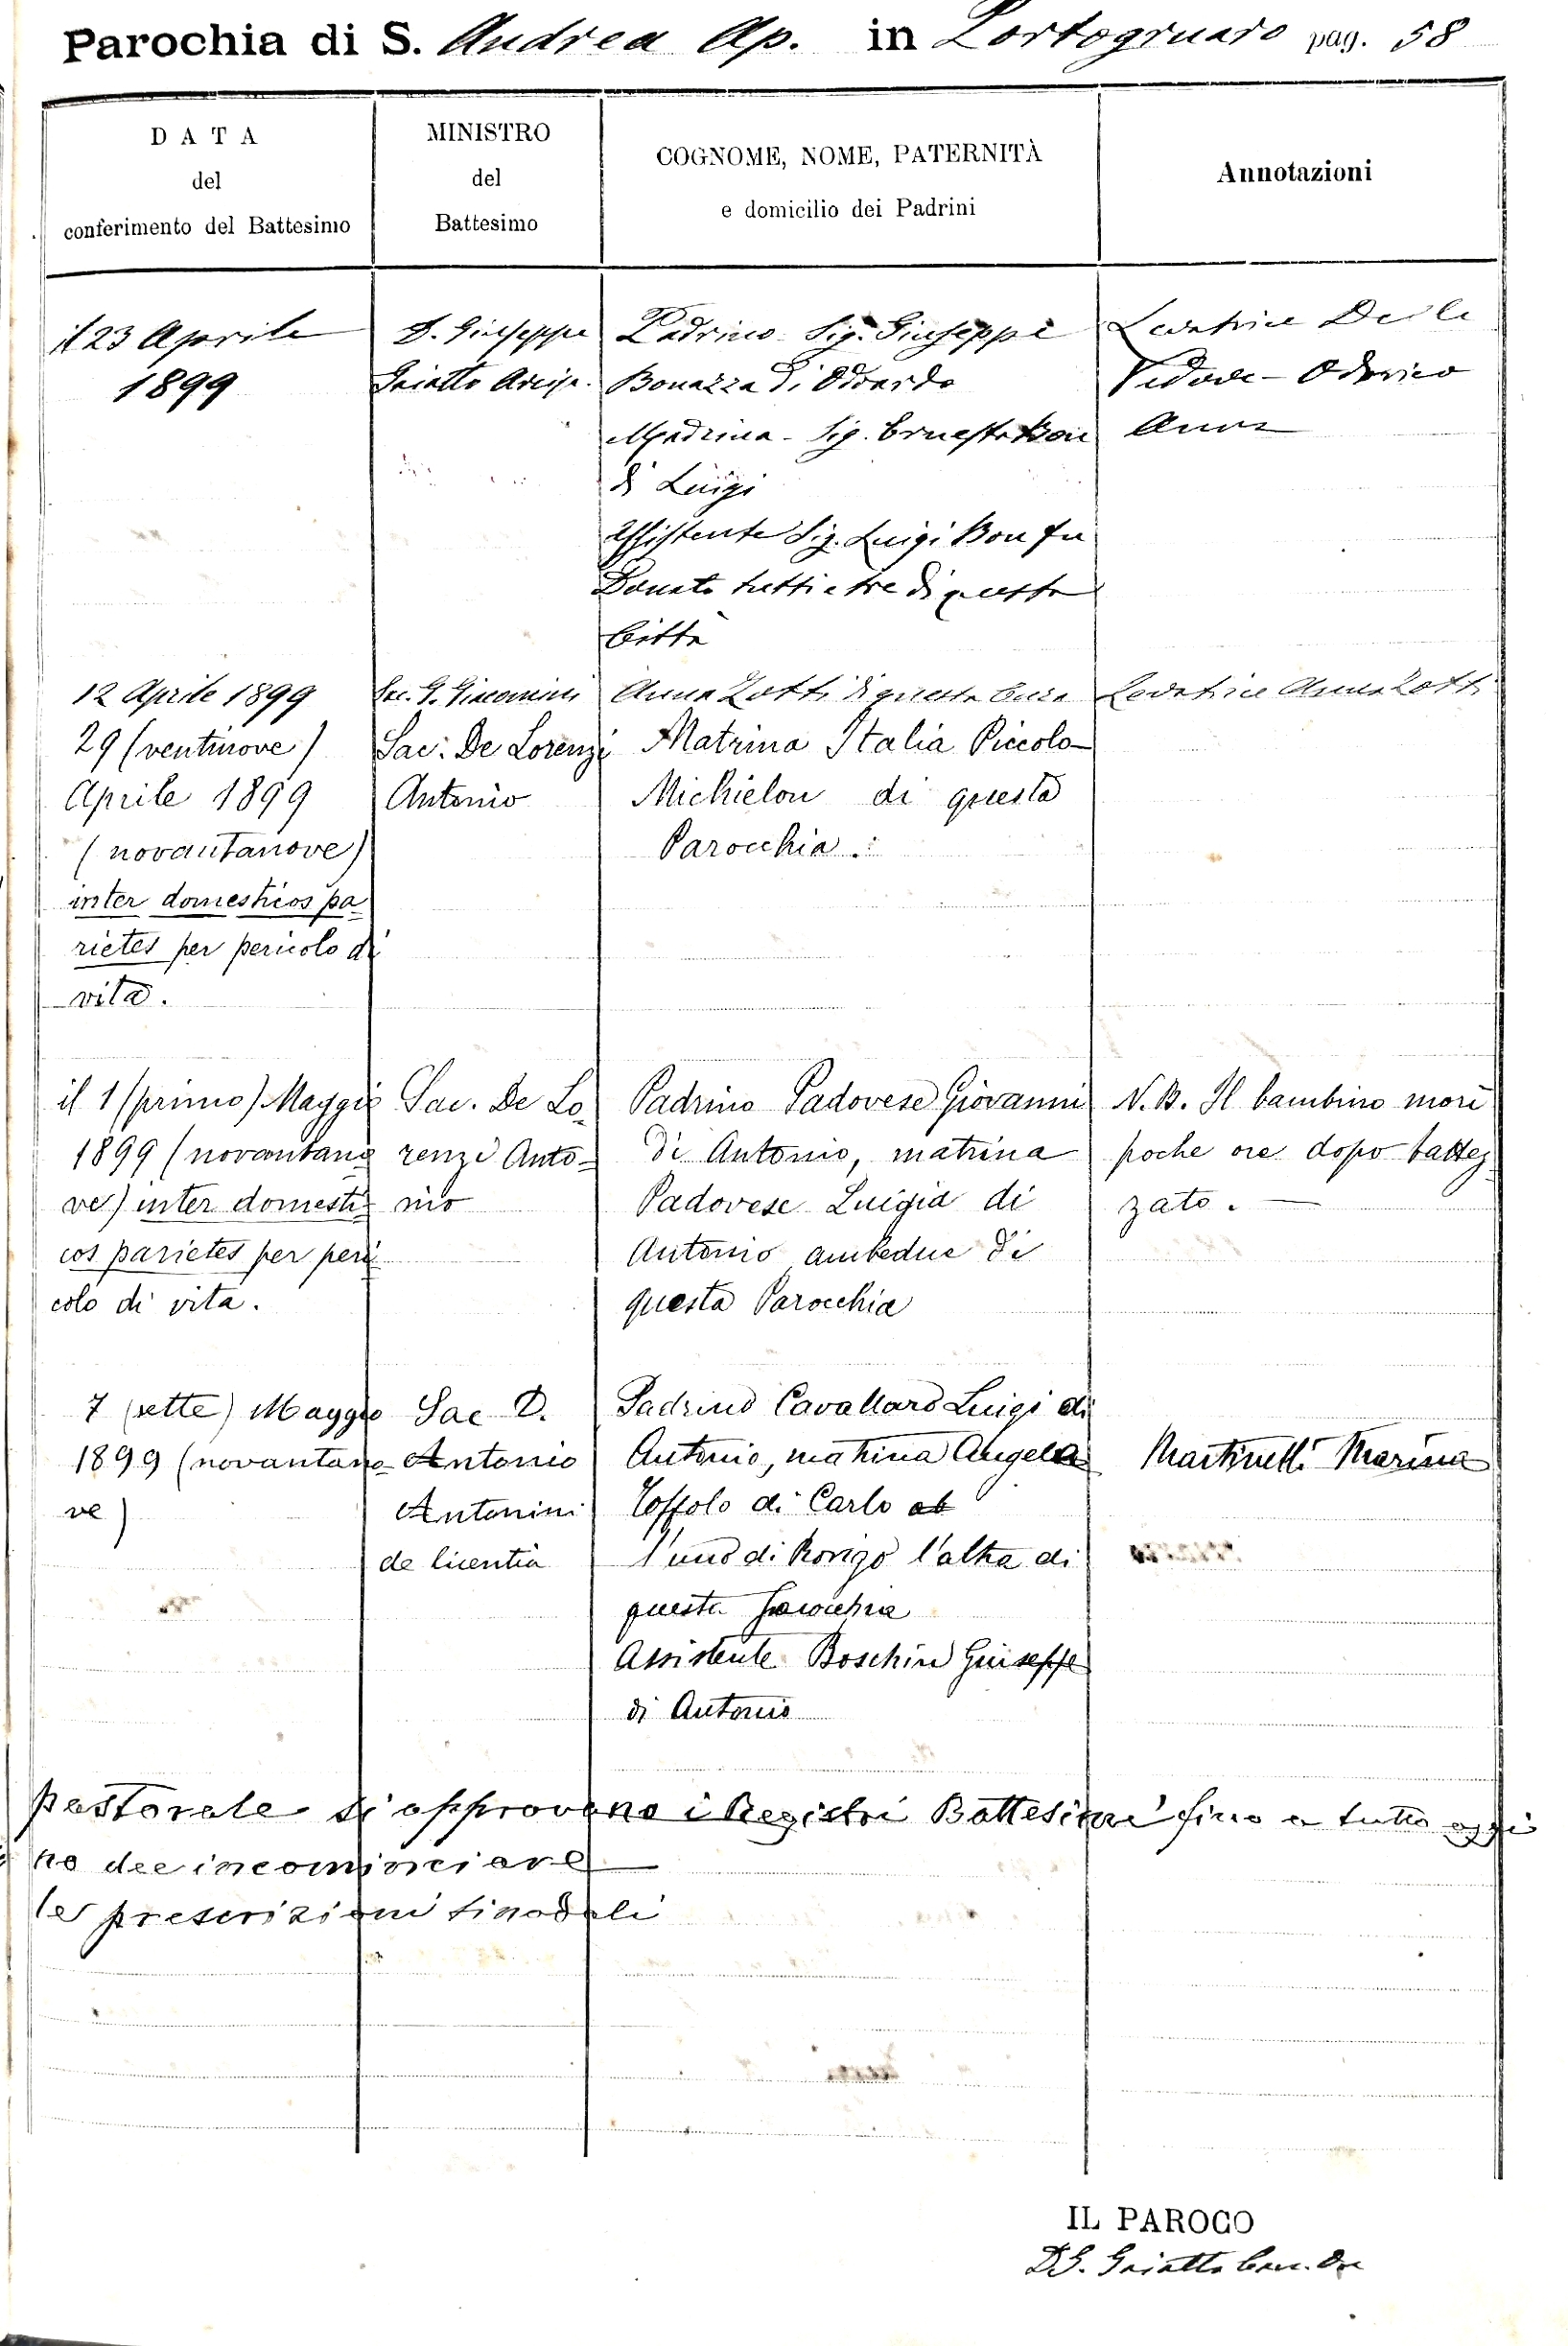 Parochia di S. Andrea Ap. in Portogruaro pag. 58
DATA
del
conferimento del Battesimo
MINISTRO
del
Battesimo
COGNOME, NOME, PATERNITÀ
e domicilio dei Padrini
Annotazioni
il 23 Aprile
1899
D. Giuseppe
Gaiatto Arcip.
Padrino Sig. Giuseppe
Bonazza di Odoardo
Madrina - Sig. Ernesta Bon
di Luigi
Assistente Sig. Luigi Bon fu
Donato tutti e tre di questa
Città
Levatrice Delle
Vedove - Oderico
Anna
12 Aprile 1899
Sac. G. Giacomini
Anna Zotti di questa
Levatrice Anna Zotti
29 (ventinove)
Aprile 1899
(novantanove)
inter domesticos pa
rietes per pericolo di
vita.
Sac. De Lorenzi
Antonio
Matrina Italia Piccolo-
Michielon di questa
Parocchia.
il 1 (primo) Maggio
1899 (novantano
ve) inter domesti
cos parietes per peri
colo di vita.
Sac. De Lo
renzi Anto=
nio
Padrino Padovese Giovanni
di Antonio, matrina
Padovese Luigia di
Antonio ambedue di
questa Parocchia
N.B. Il bambino morì
poche ore dopo battez
zato.
7 (sette) Maggio
1899 (novantano
ve)
Sac D.
Antonio
Antonini
de licentia
Padrino Cavallaro Luigi di
Antonio, matrina Angela
Toffolo di Carlo ab
l'uno di Rovigo l'altra di
questa Parocchia
Assistente Boschin Giuseppe
di Antonio
Martinelli Marina
pastorale si approvano i Registri Battesimi fino a tutto oggi
no dee incominciare
le prescrizioni sinodali
IL PAROCO
D. G. Gaiatto